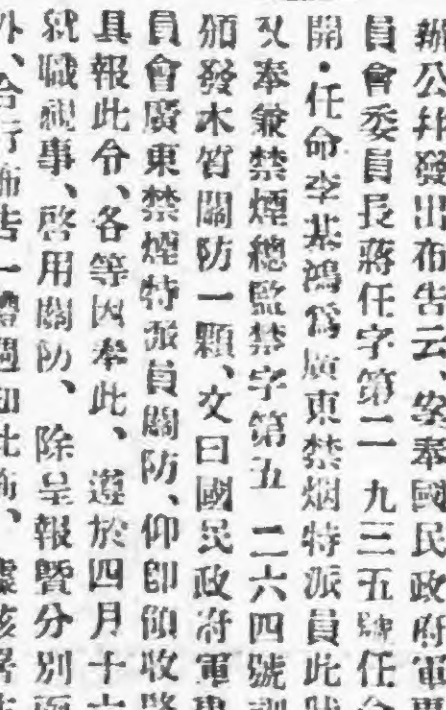 辦公幷發出布告云、案奉國民政府軍事
員會委員長蔣任字第二九三五號任令
開・任命李基鴻爲廣東禁烟特派員此狀
又奉兼禁煙總監禁字第五二六四號訓
頒發木質關防一顆、文曰國民政府軍事
員會廣東禁煙特派員關防、仰卽領收
具報此令、各等因奉此、遵於四月十
就職視事、啓用關防、除呈報曁分別
外、合行佈吿一體週知此佈、據該署